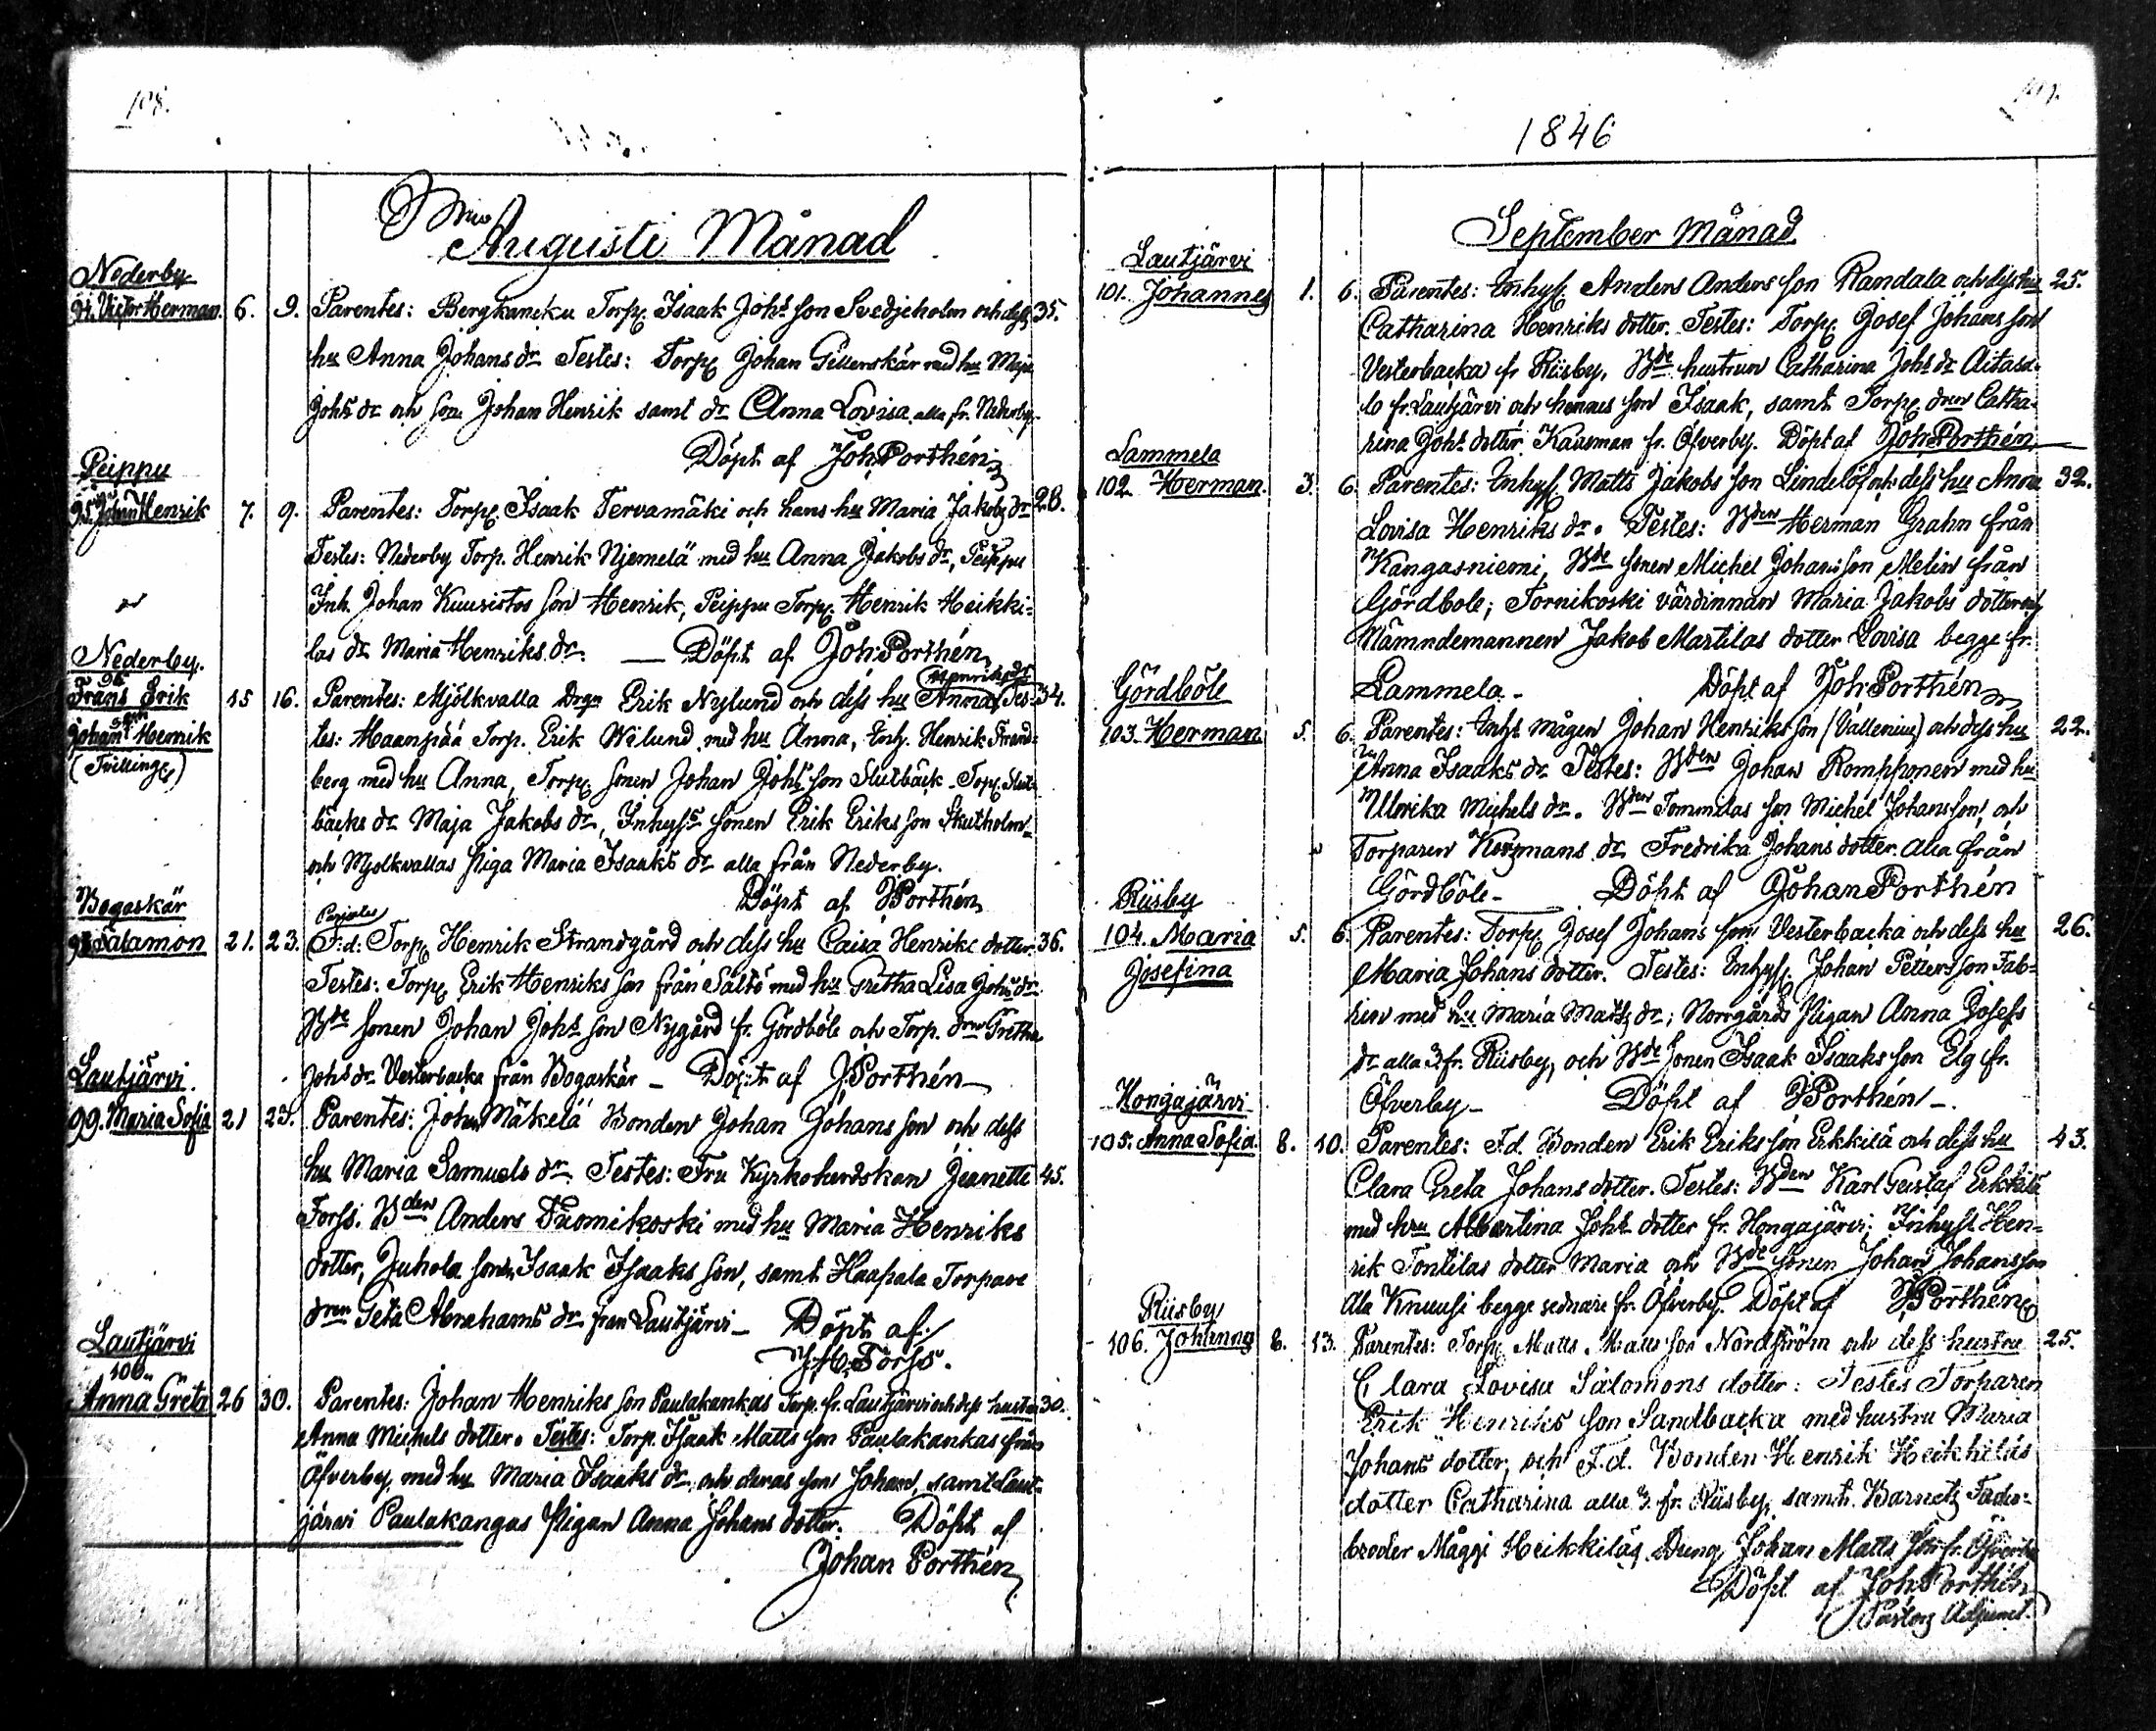 108.
Augusti Månad
Nederby
94. Victor Herman. 6. 9. Parentes: Bergkancku Torp. Isaak Johs son Svedjeholm och dess 35.
hu Anna Johans dr Testes: Torp. Johan Gillerskär med hu Maja
Johs dr och son Johan Henrik samt dr Anna Lovisa alla fr. Nederby.
Döpt af Joh Porthén
Peippu
95. Johan Henrik 7. 9. Parentes: Torp. Isaak Tervamäki och hans hu Maria Jakobs dr 28.
Testes: Nederby Torp. Henrik Njemelä med hu Anna Jakobs dr, Peippu
Inh. Johan Kuuristos son Henrik, Peippu Torp. Henrik Heikki-
las dr Maria Henriks dr. — Döpt af Joh. Porthén
Nederby.
96
Frans Erik 15 16. Parentes: Mjölkvalla Drgn Erik Nylund och dess hu Anna Henriks dr Tes- 34.
samt
Johan Henrik tes: Haanpää Torp. Erik Wilund med hu Anna, Inh. Henrik Strand-
(Tvillingar) berg med hu Anna, Torp. sonen Johan Johs son Slutbäck - Torp. Slut-
bäcks dr Maja Jakobs dr, Inhyss sonen Erik Eriks son Skutholm
och Mjolkvallas piga Maria Isaaks dr alla från Nederby.
Döpt af J Porthén
Bogaskär
98. Salamon 21. 23. F.d. Torp. Henrik Strandgård och dess hu Caisa Henriks dotter. 36.
Testes: Torp. Erik Henriks son från Saltö med hu Gretha Lisa Johs dr
Bde sonen Johan Johs son Nygård fr. Gördböle och Torp. drn Gretha
Johs dr Vesterbacka från Bogaskär - Döpt af J Porthén
Lautjärvi.
99. Maria Sofia 21 Parentes: Johan Mäkelä Bonden Johan Johans son och dess
hu Maria Samuels dr Testes: Fru Kyrkoherdskan Jeanette 45.
Forss. Bden Anders Tuomikoski med hu Maria Henriks
dotter, Juhola sonen Isaak Isaaks son, samt Haapala Torpare
dren Greta Abrahams dr från Lautjärvi - Döpt af
J.H. Forss.
Lautjärvi
100.
Anna Greta 26 30. Parentes: Johan Henriks son Paulakankas Torp. fr. Lautjärvi och dess hustru 30.
Anna Michels dotter. Testes: Torp. Isaak Matts son Paulakankas från
Öfverby, med hu Maria Isaaks dr och deras son Johan, samt Laut-
järvi Paulakangas Pigan Anna Johans dotter. Döpt af
Johan Porthén
1846
September Månad
Lautjärvi
101. Johannes 1. 6. Parentes: Inhys. Anders Anders son Randala och dess hu 25.
Catharina Henriks dotter. Testes: Torp. Josef Johans son
Vesterbacka fr Riisby, Bde hustrun Catharina Johs dr Aitasa-
lo fr. Lautjärvi och hennes son Isaak, samt Torp. dren Catha-
rina Johs dotter Kaasman fr. Öfverby. Döpt af Joh Porthén
Lammela
102. Herman. 3. 6. Parentes: Inhys. Matts Jakobs son Lindelöf och dess hu Anna 32.
Lovisa Henriks dr. Testes: Bden Herman Grahn från
Kangasniemi, Bde sonen Michel Johansson Melin från
Gördbole; Tornikoski värdinnan Maria Jakobs dotter och
Nämndemannen Jakob Martilas dotter Lovisa begge fr.
Lammela - Döpt af Joh Porthén
Gördböle
103. Herman 5. 6. Parentes: Inhs mågen Johan Henriks son (Vallenius) och dess hu 22.
Anna Isaaks dr Testes: Bden Johan Romppanen med hu
Ullrika Michels dr. Bden Tommilas son Michel Johansson, och
Torparen Korpmans dr Fredrika Johans dotter alla från
Gördböle - Döpt af Johan Porthén
Riisby
104. Maria 5. 6. Parentes: Torp. Josef Johans son Vesterbacka och dess hu 26.
Josefina Maria Johans dotter. Testes: Inhys. Johan Petters son Fab-
rin med hu Maria Matts dr; Norrgårds Pigan Anna Josefs
dr alla 3 fr. Riisby, och Bde sonen Isaak Isaaks son Elg fr.
Öfverby - Döpt af J Porthén -
Hongajärvi
105. Anna Sofia. 8. 10. Parentes: F.d. Bonden Erik Eriks son Erkkilä och dess hu 43.
Clara Greta Johans dotter. Testes: Bden Karl Gustaf Erkkilä
med hru Albertina Johs dotter fr. Hongajärvi; Inhyss Hen-
rik Tontilas dotter Maria och Bde sonen Johan Johansson
Ala Knuusi begge sednare fr. Öfverby. Döpt af J Porthén
Riisby
106. Johannes 8. 13. Parentes: Torp. Matts Matts son Nordström och dess hustru 25.
Clara Lovisa Salomons dotter: Testes Torparen
Erik Henriks son Sandbacka med hustru Maria
Johans dotter, och F.d. Bonden Henrik Heikkiläs
dotter Catharina alla 3. fr. Riisby, samt Barnets Fader-
broder Måggi Heikkiläs Dreng Johan Matts son fr. Öfverby
Döpt af Joh Porthén
Pastors Adjunct.